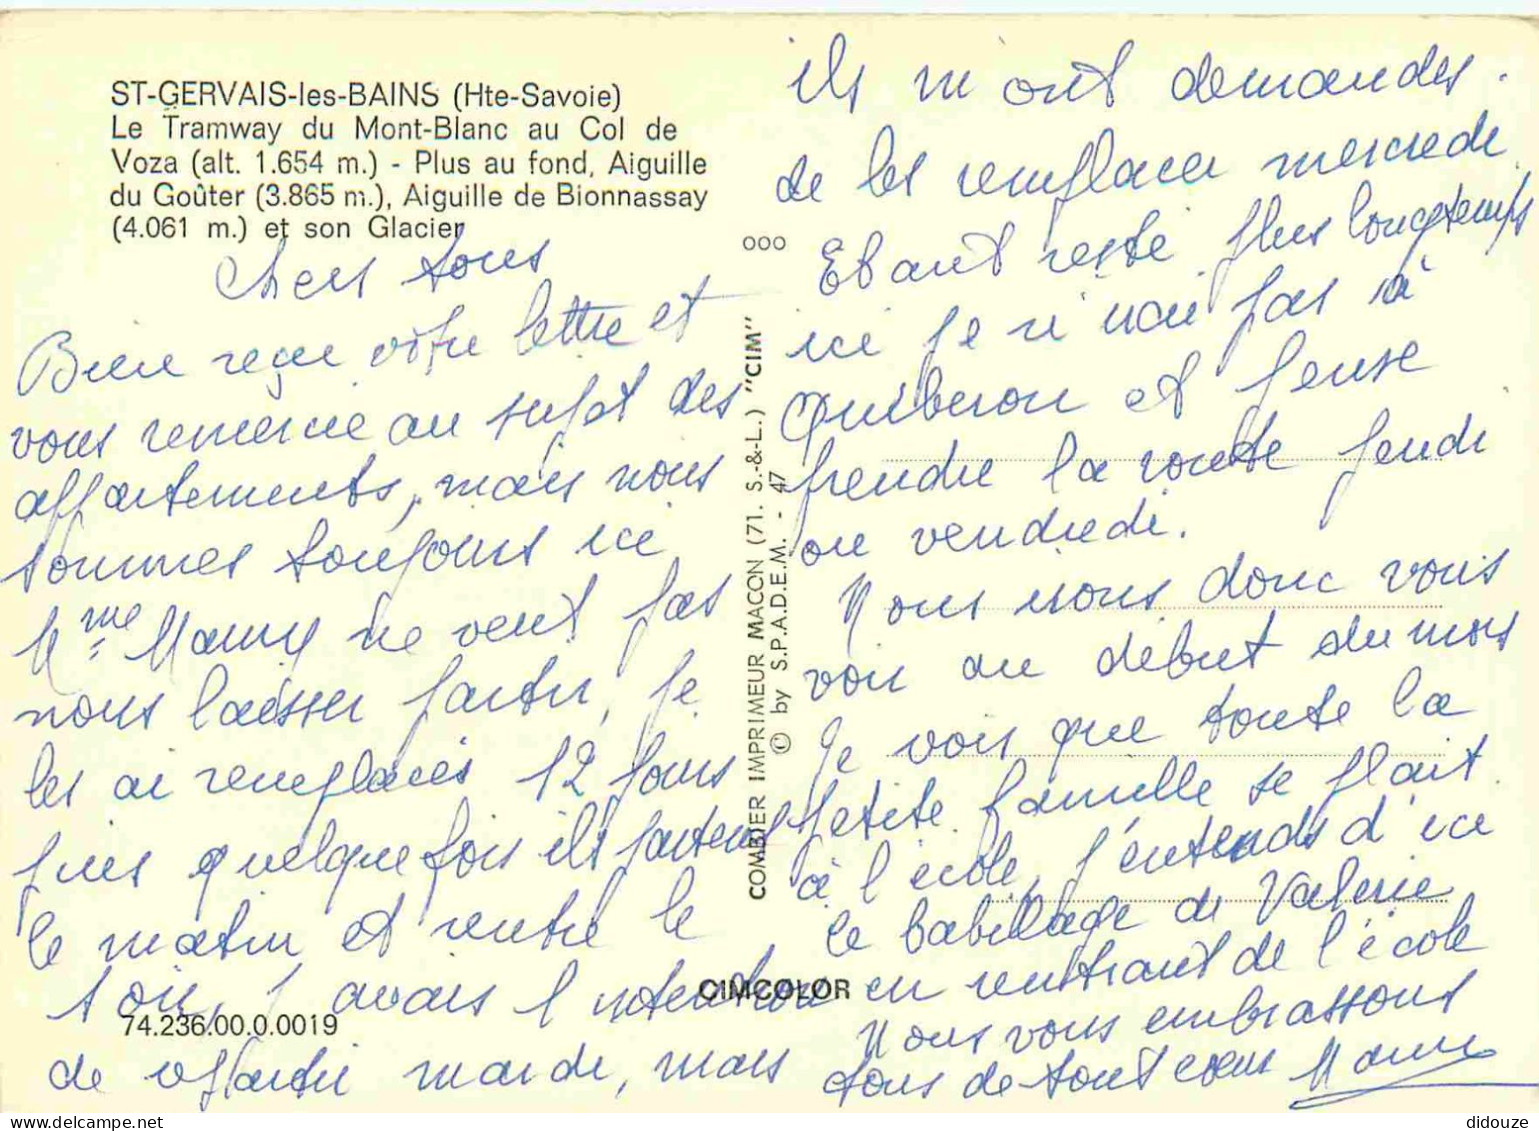 ST-GERVAIS-les-BAINS (Hte-Savoie)
Le Tramway du Mont-Blanc au Col de
Voza (alt. 1.654 m.) - Plus au fond, Aiguille
du Goûter (3.865 m.), Aiguille de Bionnassay
(4.061 m.) et son Glacier
Chers tous
Bien reçu votre lettre et
vous remercie au sujet des
appartements, mais nous
sommes toujours ici
Mme ne veut pas
nous laisser partir, je
les ai remplacés 12 jours
puis quelquefois ils partent
le matin et rentre le
soir, j avais l intention
de repartir mardi, mais
74.236.00.0.0019
CIMCOLOR
COMBIER IMPRIMEUR MACON (71. S.-&-L.) "CIM"
© by S.P.A.D.E.M. - 47
ooo
ils m ont demandés
de les remplacer mercredi
Etant resté plus longtemps
ici je n irai pas à
Quiberon et pense
prendre la route jeudi
ou vendredi.
Nous irons donc vous
voir au début du mois
Je vois que toute la
petite famille se plait
à l'école, j'entends d'ici
le babillage de Valérie
en rentrant de l'école
Nous vous embrassons
tous de tout coeur
didouze